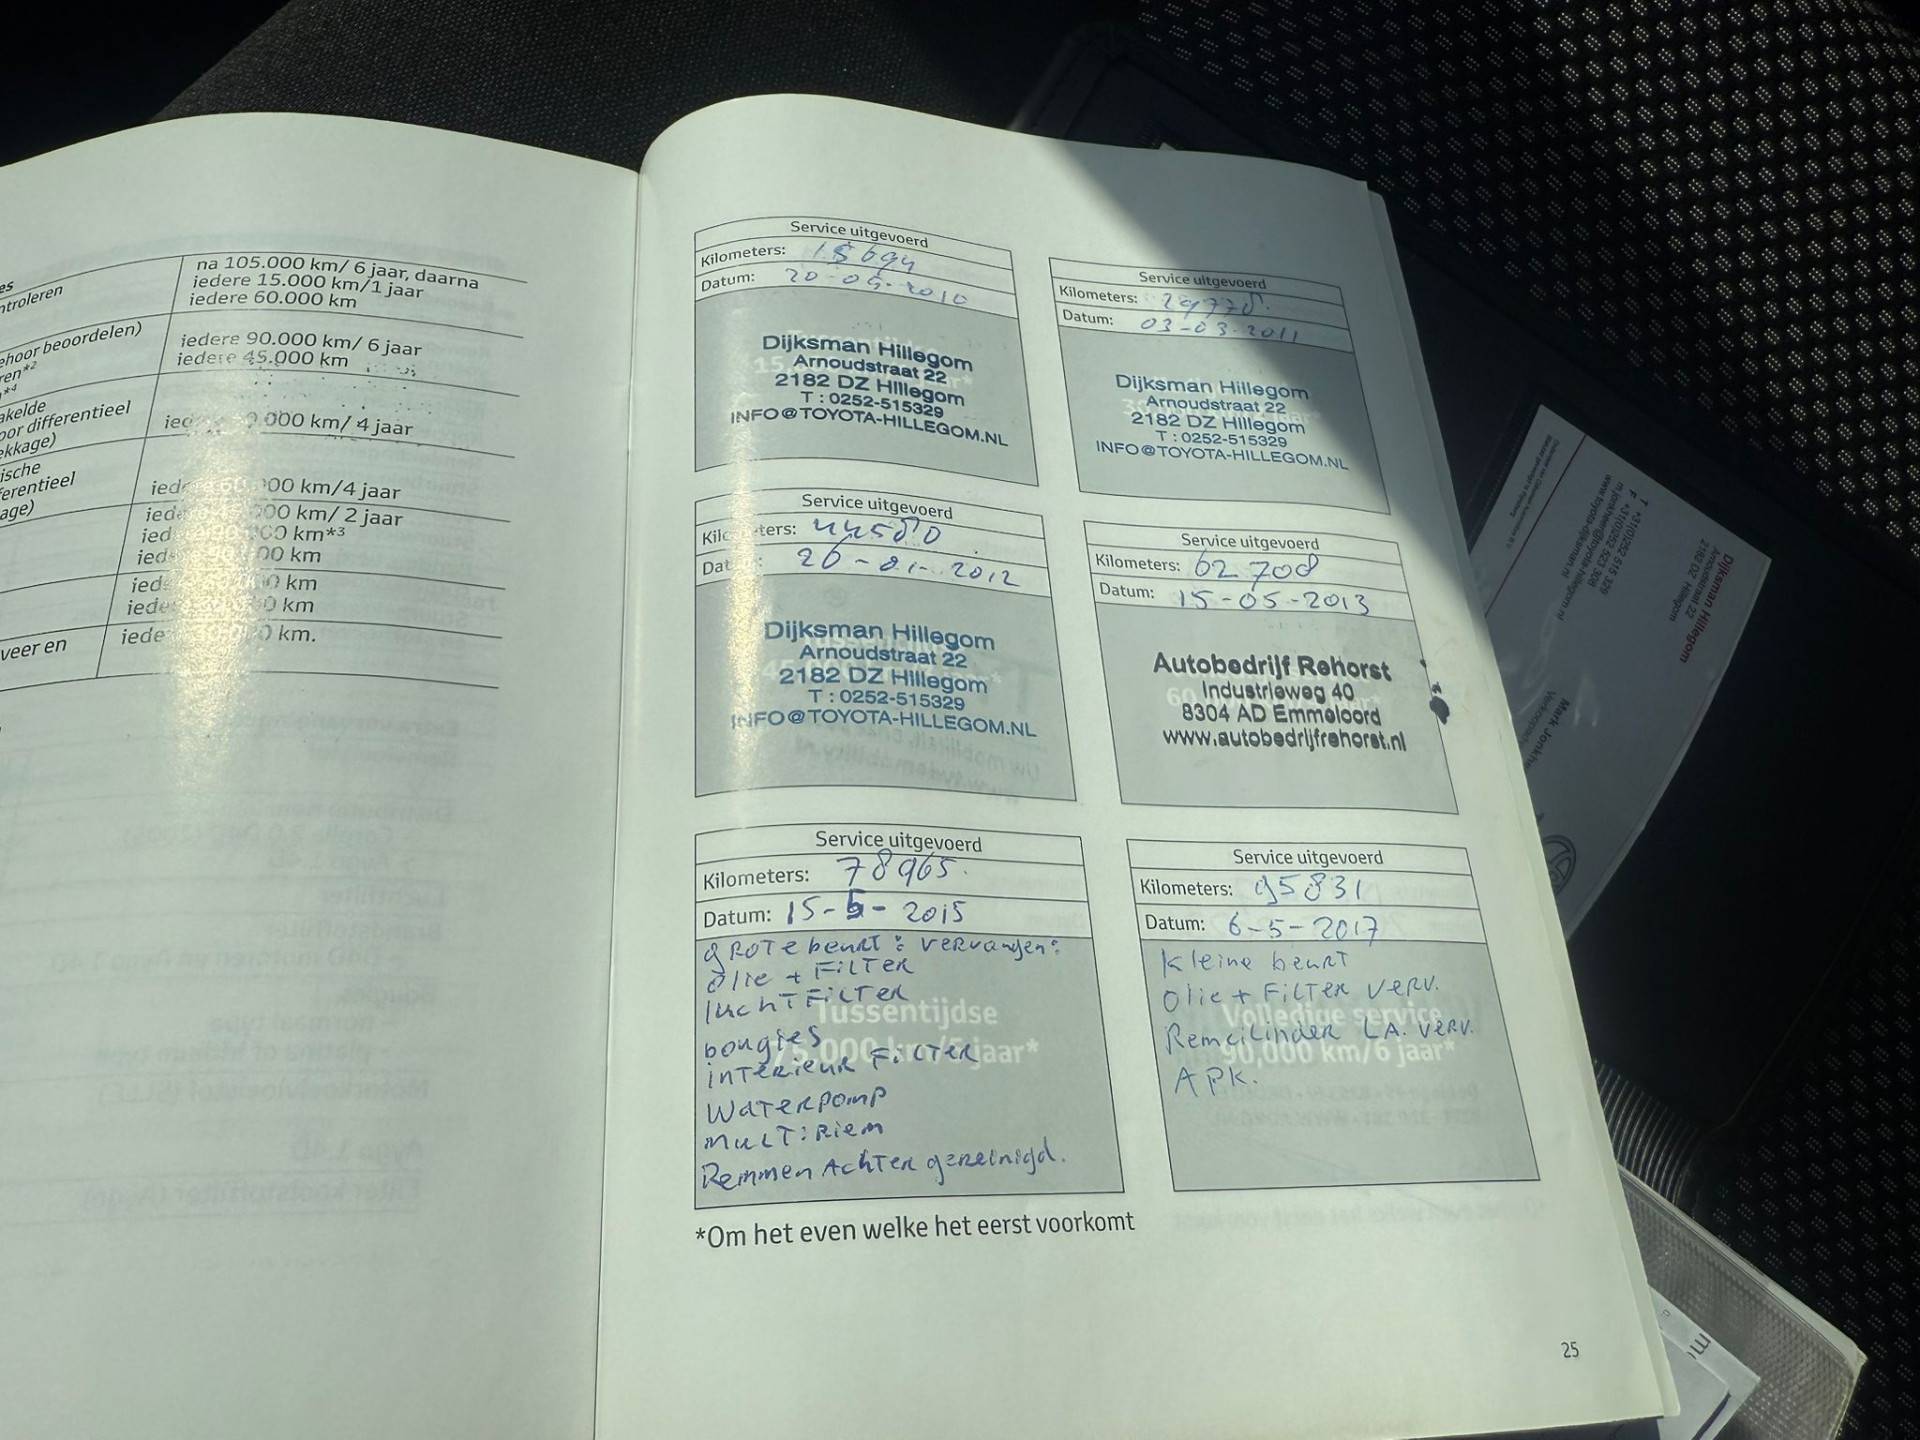 es
ntroleren
na 105.000 km/ 6 jaar, daarna
iedere 15.000 km/1 jaar
iedere 60.000 km
ehoor beoordelen)
ren*2
*4
iedere 90.000 km/ 6 jaar
iedere 45.000 km
akelde
oor differentieel
ekkage)
000 km/ 4 jaar
ische
erentieel
age)
km/4 jaar
km/ 2 jaar
km*3
km
km
km
veer en
km.
Service uitgevoerd
Kilometers: 15694
Datum: 20-05-2010
Dijksman Hillegom
Arnoudstraat 22
2182 DZ Hillegom
T : 0252-515329
INFO@TOYOTA-HILLEGOM.NL
Service uitgevoerd
Kilometers: 29778
Datum: 03-03-2011
Dijksman Hillegom
Arnoudstraat 22
2182 DZ Hillegom
T : 0252-515329
INFO@TOYOTA-HILLEGOM.NL
Service uitgevoerd
Kilometers: 44580
Datum: 26-01-2012
Dijksman Hillegom
Arnoudstraat 22
2182 DZ Hillegom
T : 0252-515329
INFO@TOYOTA-HILLEGOM.NL
Service uitgevoerd
Kilometers: 62708
Datum: 15-05-2013
Autobedrijf Rehorst
Industrieweg 40
8304 AD Emmeloord
www.autobedrijfrehorst.nl
Service uitgevoerd
Kilometers: 78965
Datum: 15-5-2015
grote beurt: vervangen:
Olie + Filter
luchtFilter
Tussentijdse
bougies
75.000 km/5 jaar*
interieur Filter
Waterpomp
Multiriem
Remmen Achter gereinigd.
Service uitgevoerd
Kilometers: 95831
Datum: 6-5-2017
Kleine beurt
Olie + Filter verv.
Volledige service
Remcilinder L.A. verv.
90,000 km/6 jaar*
APK.
*Om het even welke het eerst voorkomt
25
Dijksman Hillegom
Arnoudstraat 22
2182 DZ Hillegom